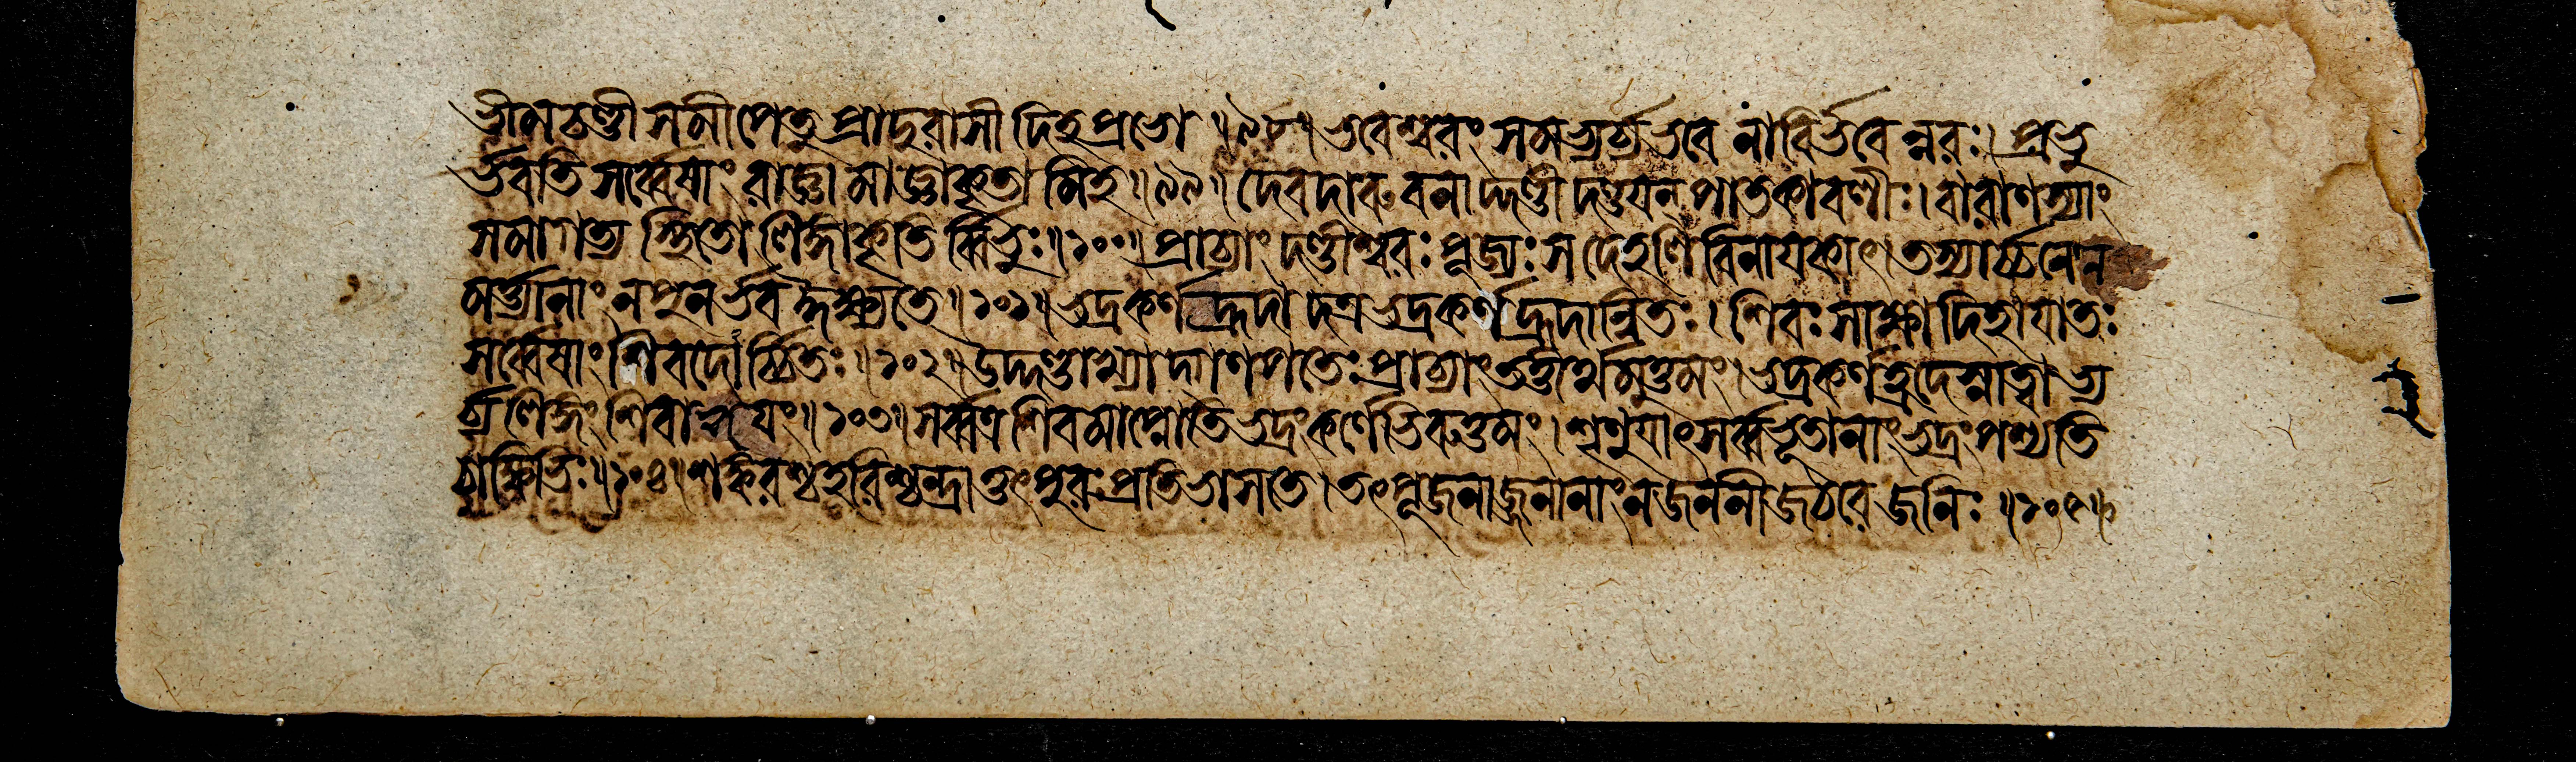 ভীমচণ্ডী সমীপেতু প্রাদুরাসী দিহপ্রভো ॥৯৮॥ ভবেশ্বরং সমভ্যর্চ্য ভবে নাবির্ভবে ন্নরঃ। প্রভু
র্ভবতি সর্ব্বেষাং রাজ্ঞা মাজ্ঞাকৃতা মিহ॥৯৯॥ দেবদারুবনা দ্দণ্ডী দণ্ডয়ন্ পাতকাবলীঃ। বারাণস্যাং
সমাগত্য স্থিতো লিঙ্গাকৃতি র্বিভুঃ॥১০০॥ প্রাচ্যাং দণ্ডীশ্বরঃ পূজ্যঃ স দেহলি বিনায়কাৎ। তস্যার্চ্চনেন
মর্ত্ত্যানাং ন পুনর্ভব ঈক্ষ্যতে॥১০১॥ ভদ্রকর্ণ হ্রদা দত্র ভদ্রকর্ণ হ্রদান্বিতঃ। শিবঃ সাক্ষা দিহায়াতঃ
সর্ব্বেষাং শিবদোর্চ্চিতঃ॥১০২॥ উদ্দণ্ডাখ্যা দ্গণপতেঃ প্রাচ্যাং তত্তীর্থমুত্তমং। ভদ্রকর্ণহ্রদে স্নাত্বাভ্য
র্চ্য লিঙ্গং শিবাহ্বয়ং॥১০৩॥ সর্ব্বত্র শিবমাপ্নোতি ভদ্রং কর্ণেভিরুত্তমং। শৃণুয়াৎ সর্ব্বভূতানাং ভদ্রং পশ্যতি
চাক্ষিভিঃ॥১০৪॥ শঙ্করশ্চ হরিশ্চন্দ্রা ত্তৎ পুরঃ প্রতিভাসতে। তৎ পূজনা জ্জনানাং ন জননী জঠরে জনিঃ॥১০৫॥